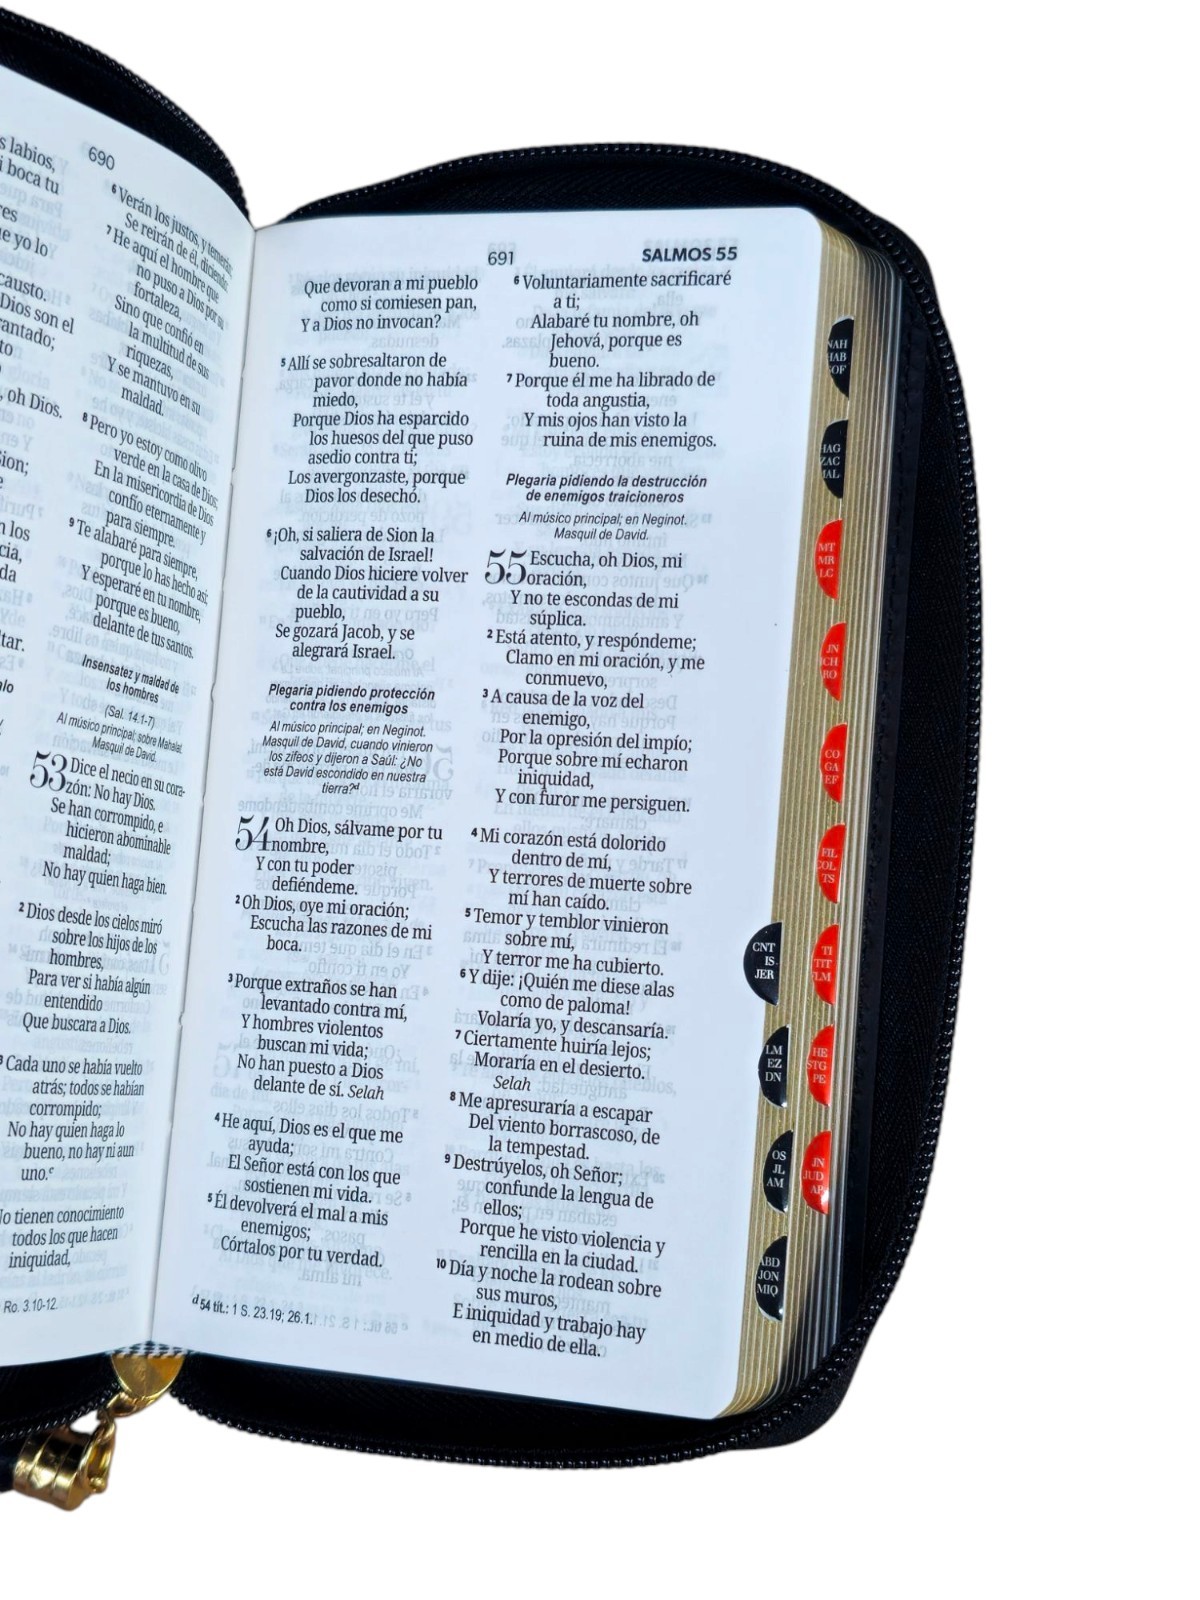 s labios,
i boca tu
e yo lo
causto.
Dios son el
antado;
, oh Dios.
Sion;
n los
cia,
da
tar.
690
6 Verán los justos, y temerán;
Se reirán de él, diciendo:
7 He aquí el hombre que
no puso a Dios por su
fortaleza,
Sino que confió en
la multitud de sus
riquezas,
Y se mantuvo en su
maldad.
8 Pero yo estoy como olivo
verde en la casa de Dios;
En la misericordia de Dios
confío eternamente y
para siempre.
9 Te alabaré para siempre,
porque lo has hecho así;
Y esperaré en tu nombre,
porque es bueno,
delante de tus santos.
Insensatez y maldad de
los hombres
(Sal. 14.1-7)
Al músico principal; sobre Mahalat.
Masquil de David.
53 Dice el necio en su cora-
zón: No hay Dios.
Se han corrompido, e
hicieron abominable
maldad;
No hay quien haga bien.
2 Dios desde los cielos miró
sobre los hijos de los
hombres,
Para ver si había algún
entendido
Que buscara a Dios.
3 Cada uno se había vuelto
atrás; todos se habían
corrompido;
No hay quien haga lo
bueno, no hay ni aun
uno.c
No tienen conocimiento
todos los que hacen
iniquidad,
Ro. 3.10-12.
691
SALMOS 55
Que devoran a mi pueblo
como si comiesen pan,
Y a Dios no invocan?
5 Allí se sobresaltaron de
pavor donde no había
miedo,
Porque Dios ha esparcido
los huesos del que puso
asedio contra ti;
Los avergonzaste, porque
Dios los desechó.
6 ¡Oh, si saliera de Sion la
salvación de Israel!
Cuando Dios hiciere volver
de la cautividad a su
pueblo,
Se gozará Jacob, y se
alegrará Israel.
Plegaria pidiendo protección
contra los enemigos
Al músico principal; en Neginot.
Masquil de David, cuando vinieron
los zifeos y dijeron a Saúl: ¿No
está David escondido en nuestra
tierra?d
54 Oh Dios, sálvame por tu
nombre,
Y con tu poder
defiéndeme.
2 Oh Dios, oye mi oración;
Escucha las razones de mi
boca.
3 Porque extraños se han
levantado contra mí,
Y hombres violentos
buscan mi vida;
No han puesto a Dios
delante de sí. Selah
4 He aquí, Dios es el que me
ayuda;
El Señor está con los que
sostienen mi vida.
5 Él devolverá el mal a mis
enemigos;
Córtalos por tu verdad.
d 54 tít.: 1 S. 23.19; 26.1.
6 Voluntariamente sacrificaré
a ti;
Alabaré tu nombre, oh
Jehová, porque es
bueno.
7 Porque él me ha librado de
toda angustia,
Y mis ojos han visto la
ruina de mis enemigos.
Plegaria pidiendo la destrucción
de enemigos traicioneros
Al músico principal; en Neginot.
Masquil de David.
55 Escucha, oh Dios, mi
oración,
Y no te escondas de mi
súplica.
2 Está atento, y respóndeme;
Clamo en mi oración, y me
conmuevo,
3 A causa de la voz del
enemigo,
Por la opresión del impío;
Porque sobre mí echaron
iniquidad,
Y con furor me persiguen.
4 Mi corazón está dolorido
dentro de mí,
Y terrores de muerte sobre
mí han caído.
5 Temor y temblor vinieron
sobre mí,
Y terror me ha cubierto.
6 Y dije: ¡Quién me diese alas
como de paloma!
Volaría yo, y descansaría.
7 Ciertamente huiría lejos;
Moraría en el desierto.
Selah
8 Me apresuraría a escapar
Del viento borrascoso, de
la tempestad.
9 Destrúyelos, oh Señor;
confunde la lengua de
ellos;
Porque he visto violencia y
rencilla en la ciudad.
10 Día y noche la rodean sobre
sus muros,
E iniquidad y trabajo hay
en medio de ella.
CNT
IS
JER
LM
EZ
DN
OS
JL
AM
ABD
JON
MIQ
NAH
HAB
SOF
HAG
ZAC
MAL
MT
MR
LC
JN
HCH
RO
CO
GA
EF
FIL
COL
TS
TI
TIT
FLM
HE
STG
PE
JN
JUD
AP